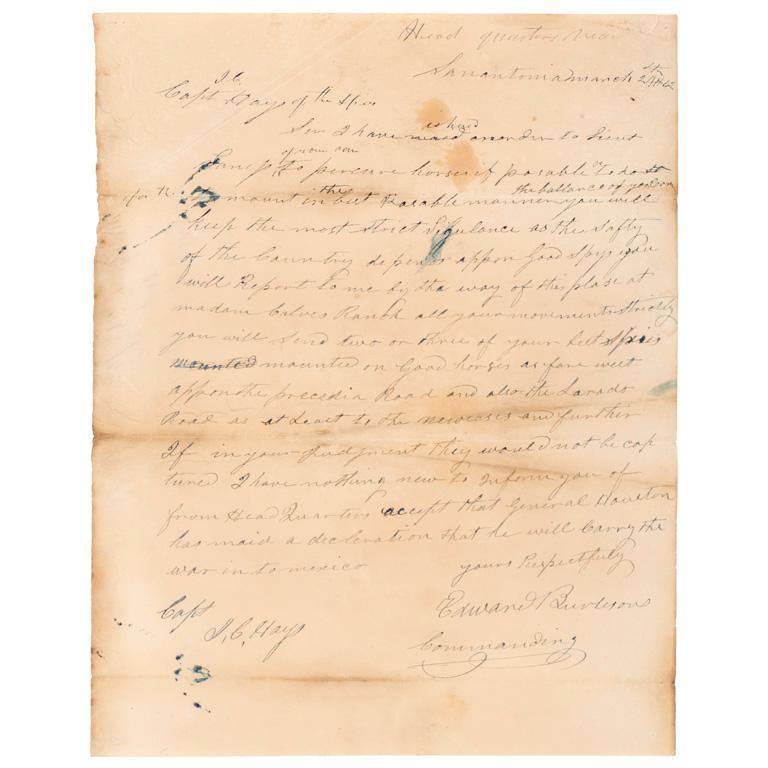 Head quarters Near
Sanantonia march 24th 42
J. C.
Capt Hays of the Spies
Sir I have ishued an order to Lieut
of your com
to percure horses if posable to
for the mount in the best Posable manner the ballance of you will
keep the most strict Sigulance as the Safty
of the Country depends appon Good Spys you
will Report to me by tha way of this plase at
madam Calves Ranch all your movements Strictly
you will Send two or three of your best Spies
mounted mounted on Good horses as fare west
appon the precedia Road and also the Larado
Road as at Least to the newcases and further
If in your Judgment they would not be cap
tured I have nothing new to Inform you of
from Head Quarters accept that General Houston
has maid a decleration that he will Carry the
war in to mexico
yours Respectfuly
Edward Burleson
Commanding
Capt
J, C, Hays